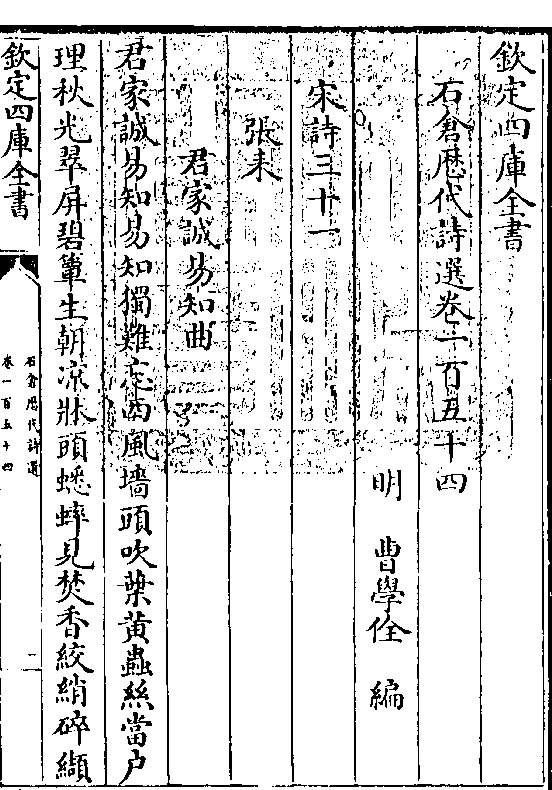 欽定四庫全書
石倉歴代詩選卷一百五十四
明 曹學佺 編
宋詩三十一
張耒
君家誠易知曲
君家誠易知易知獨難忘西風墻頭吹葉黄蟲絲當户
理秋光翠屏碧簟生朝凉牀頭蟋蟀見焚香絞綃碎纈
欽定四庫全書
石倉歴代詩選
卷一百五十四